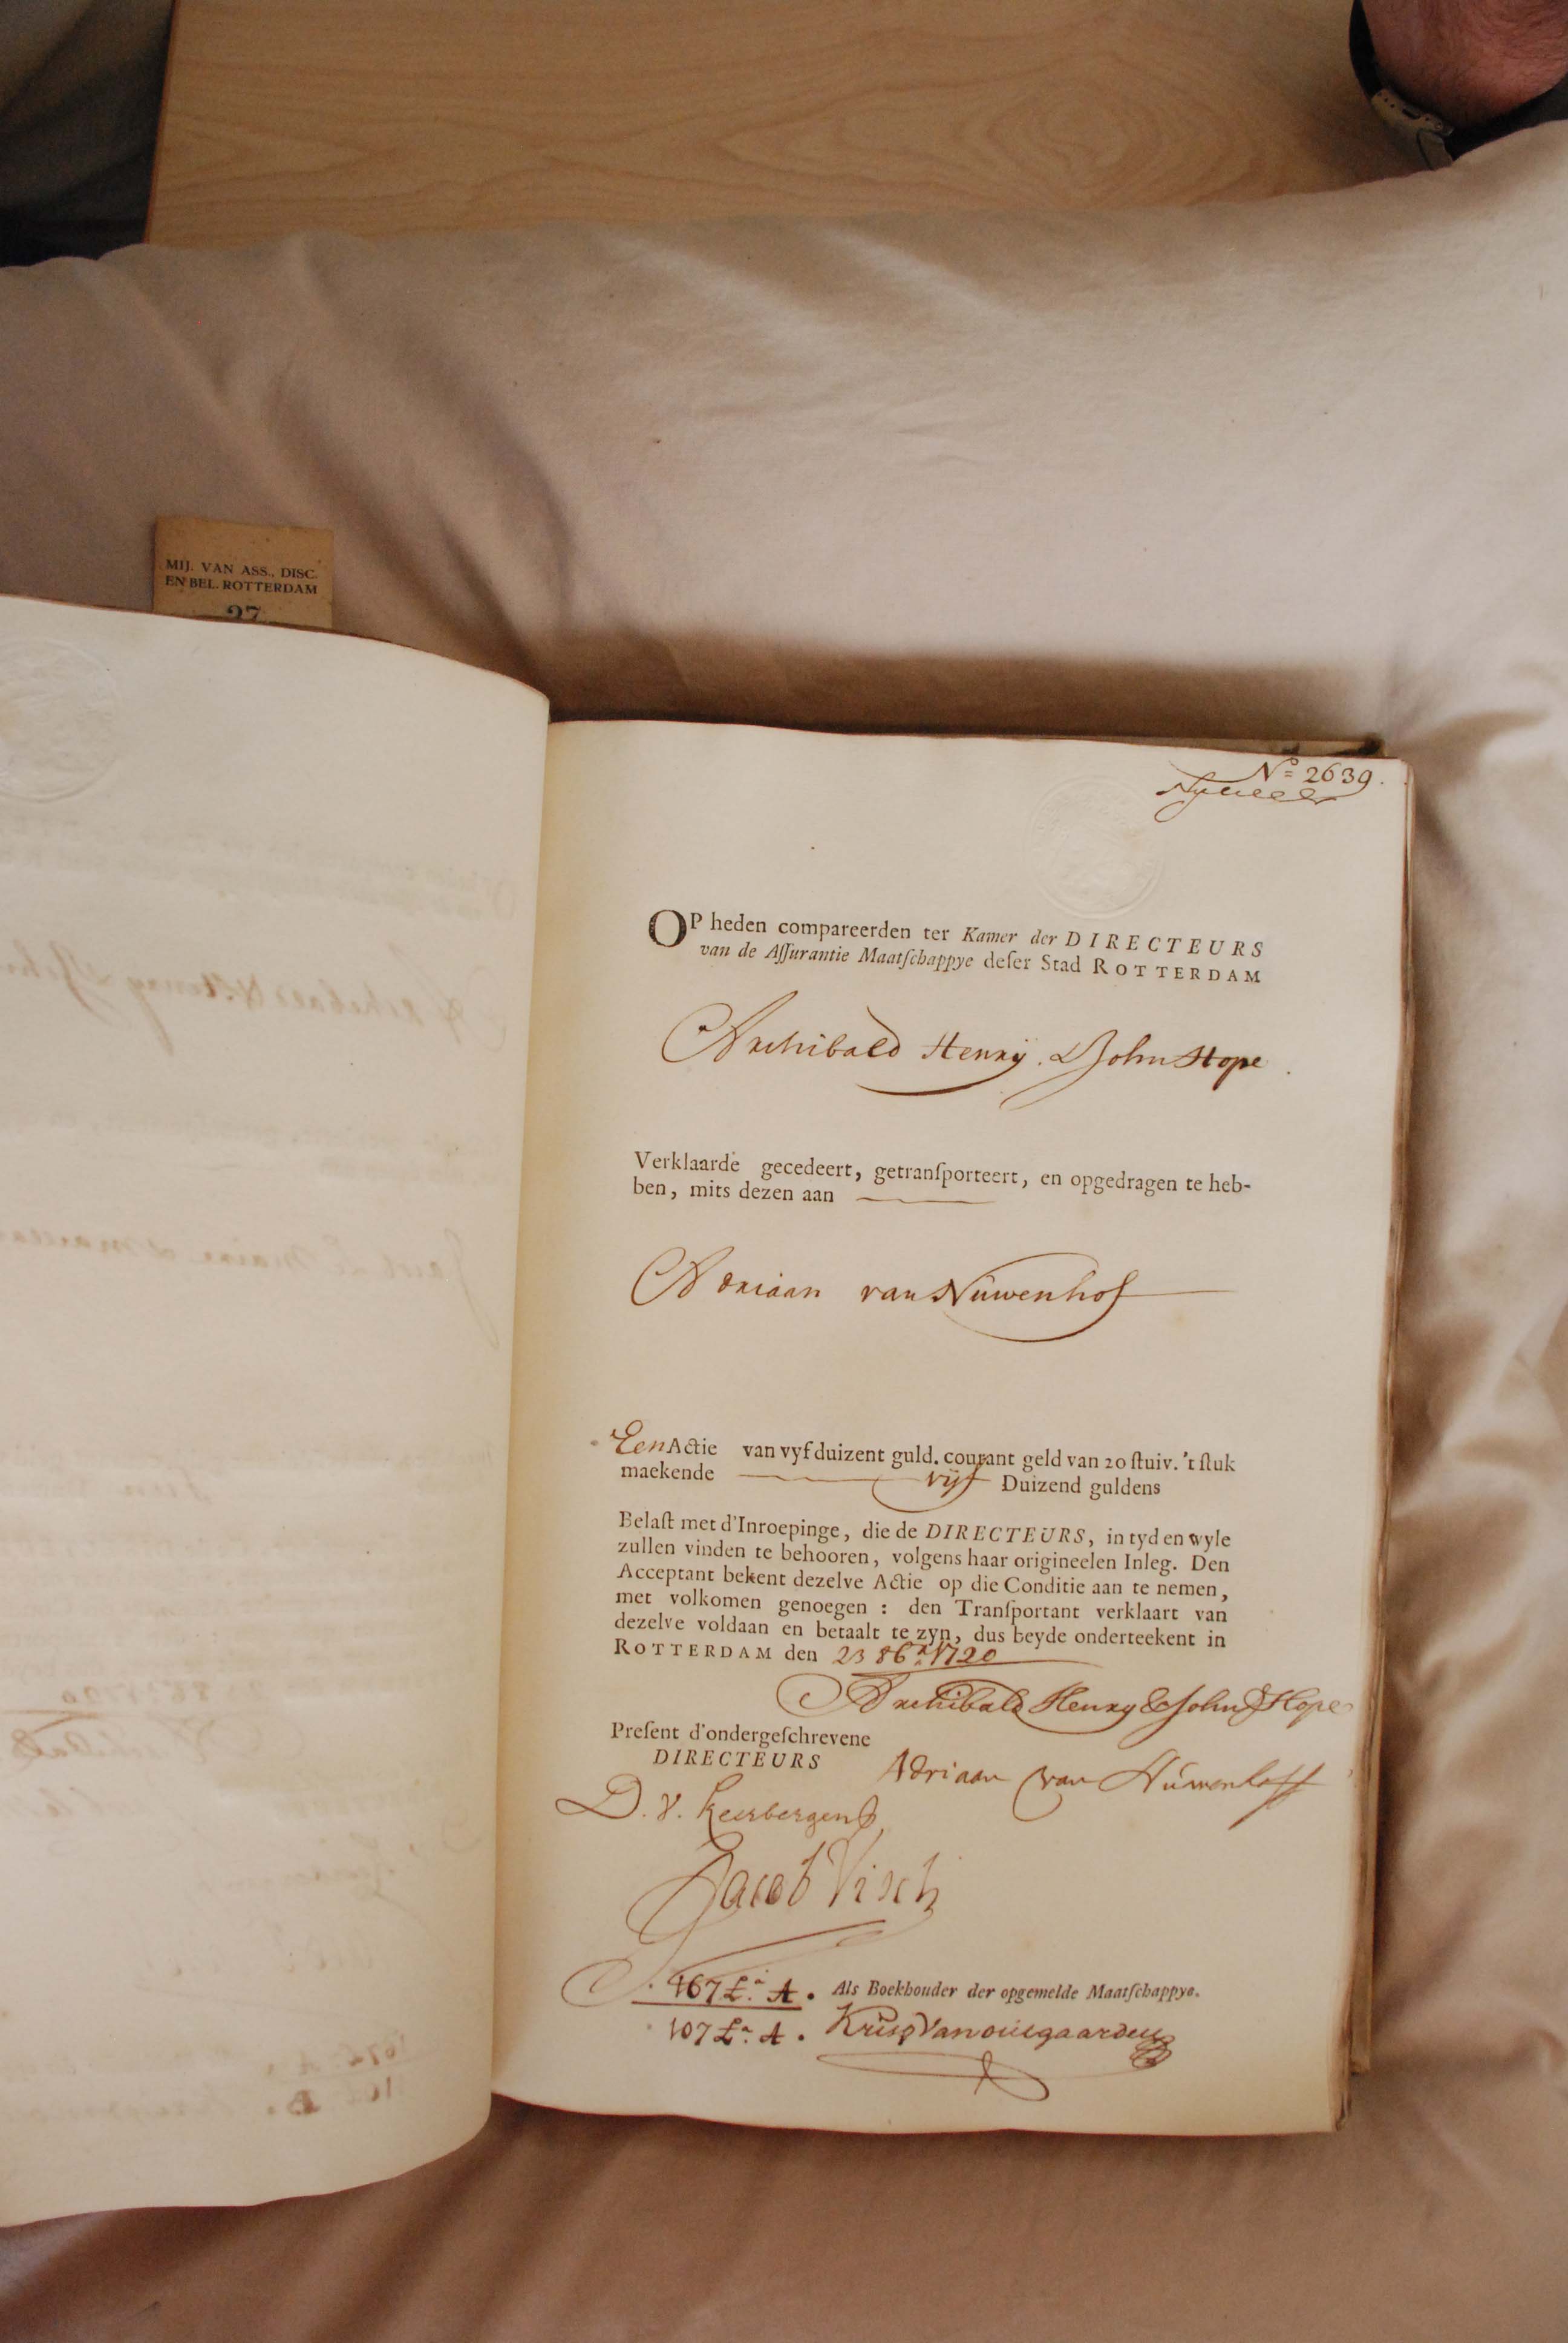 MIJ. VAN ASS., DISC.
EN BEL. ROTTERDAM
27
Nº 2639.
OP heden compareerden ter Kamer der DIRECTEURS
van de Aſſurantie Maatſchappye deſer Stad ROTTERDAM
Archibald Henrÿ & John Hope
Verklaarde gecedeert, getranſporteert, en opgedragen te heb-
ben, mits dezen aan
Adriaan van Nüwenhof
Een Actie van vyfduizent guld. courant geld van 20 ſtuiv. 't ſtuk
maekende vÿf Duizend guldens
Belaſt met d'Inroepinge, die de DIRECTEURS, in tyd en wyle
zullen vinden te behooren, volgens haar origineelen Inleg. Den
Acceptant bekent dezelve Actie op die Conditie aan te nemen,
met volkomen genoegen : den Tranſportant verklaart van
dezelve voldaan en betaalt te zyn, dus beyde onderteekent in
ROTTERDAM den 23 8br 1720
Archibald Henry & John Hope
Preſent d'ondergeſchrevene
DIRECTEURS
Adriaan van Nüwenhoff
D. V. Keerbergen
Jacob Visch
167 La A. Als Boekhouder der opgemelde Maatſchappye.
107 La A.